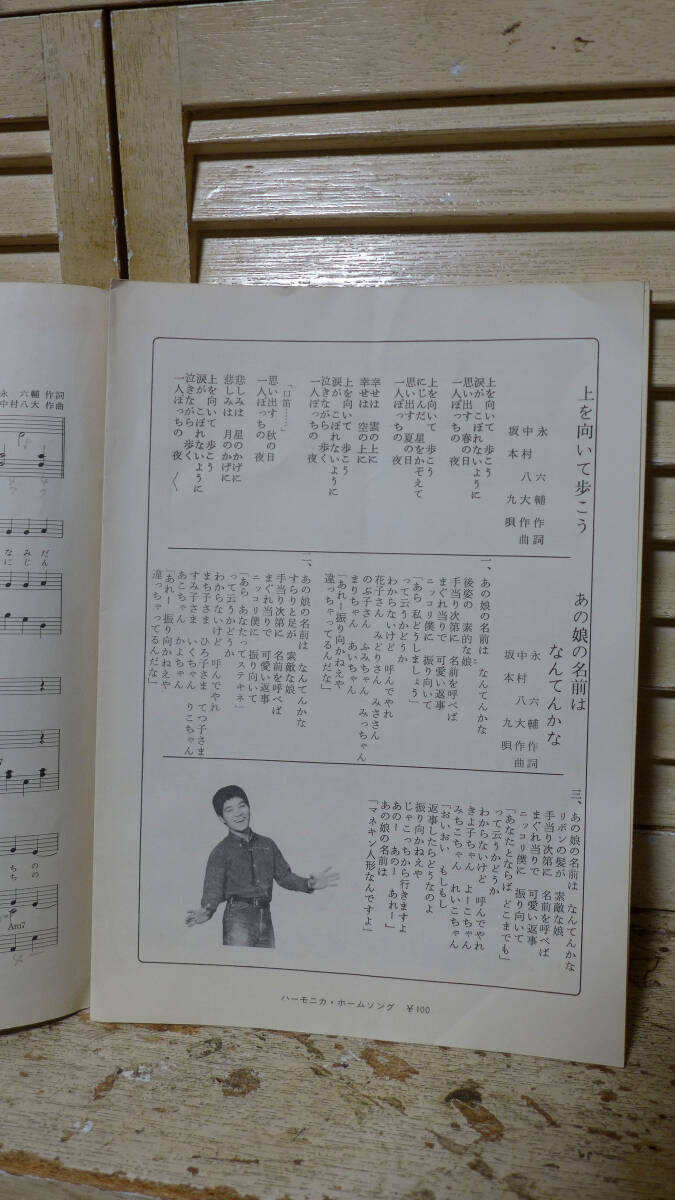 上を向いて歩こう
永六輔作詞
中村八大作曲
坂本九唄
上を向いて 歩こう
涙が こぼれないように
思い出す 春の日
一人ぼっちの 夜
上を向いて 歩こう
にじんだ 星をかぞえて
思い出す 夏の日
一人ぼっちの 夜
幸せは 雲の上に
幸せは 空の上に
上を向いて 歩こう
涙が こぼれないように
泣きながら 歩く
一人ぼっちの 夜
「口笛……」
思い出す 秋の日
一人ぼっちの 夜
悲しみは 星のかげに
悲しみは 月のかげに
上を向いて 歩こう
涙が こぼれないように
泣きながら 歩く
一人ぼっちの 夜
あの娘の名前は
なんてんかな
永六輔作詞
中村八大作曲
坂本九唄
一、あの娘の名前は なんてんかな
後姿の 素的な娘
手当り次第に 名前を呼べば
まぐれ当りで 可愛い返事
ニッコリ僕に 振り向いて
「あら 私どうしましょう」
って云うかどうか
わからないけど 呼んでやれ
花子さん みどりさん みささん
のぶ子さん ふみちゃん みっちゃん
まりちゃん あいちゃん
「あれー振り向かねえや
違っちゃってるんだな」
二、あの娘の名前は なんてんかな
すらりと足が 素敵な娘
手当り次第に 名前を呼べば
まぐれ当りで 可愛い返事
ニッコリ僕に 振り向いて
「あら あなたってステキネ」
って云うかどうか
わからないけど 呼んでやれ
まち子さま ひろ子さま てつ子さま
すみ子さま いくちゃん りこちゃん
あこちゃん かよちゃん
「あれー 振り向かねえや
違っちゃってるんだな」
三、あの娘の名前は なんてんかな
リボンの髪が 素敵な娘
手当り次第に 名前を呼べば
まぐれ当りで 可愛い返事
ニッコリ僕に 振り向いて
「あなたとならば どこまでも」
って云うかどうか
わからないけど 呼んでやれ
きよ子ちゃん よーこちゃん
みちこちゃん れいこちゃん
「おいおい もしもし
返事したらどうなのよ
振り向かねえや
じゃこっちから行きますよ
あのー あのー あれー」
あの娘の名前は
「マネキン人形なんですよ」
ハーモニカ・ホームソング ¥100
永 六輔 作詞
中村八大 作曲
なみ だ
にじ ん
の の
Am7